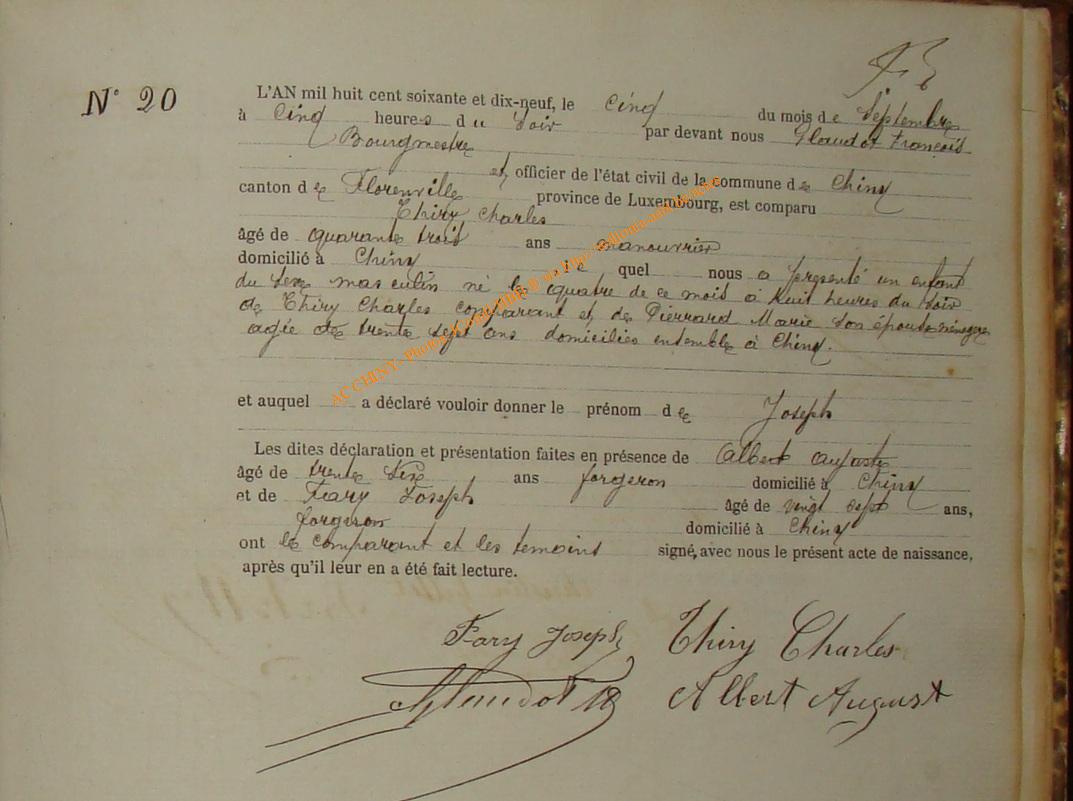 N° 20
L'AN mil huit cent soixante et dix-neuf, le cinq du mois de Septembre
à cinq heures du Soir par devant nous Glaudot François
Bourgmestre
et, officier de l'état civil de la commune de Chiny
canton de Florenville province de Luxembourg, est comparu
Thiry Charles
âgé de quarante trois ans manouvrier
domicilié à Chiny le quel nous a présenté un enfant
du sexe masculin né le quatre de ce mois à huit heures du soir
de Thiry Charles comparant et de Pierrard Marie son épouse ménagère
agée de trente sept ans domiciliés ensemble à Chiny.
et auquel a déclaré vouloir donner le prénom de Joseph
Les dites déclaration et présentation faites en présence de Albert auguste
âgé de trente six ans forgeron domicilié à Chiny
et de Fary Joseph âgé de vingt sept ans,
forgeron domicilié à Chiny
ont le comparant et les temoins signé, avec nous le présent acte de naissance,
après qu'il leur en a été fait lecture.
Fary Joseph Thiry Charles
Glaudot Albert August
AC CHINY - Photo